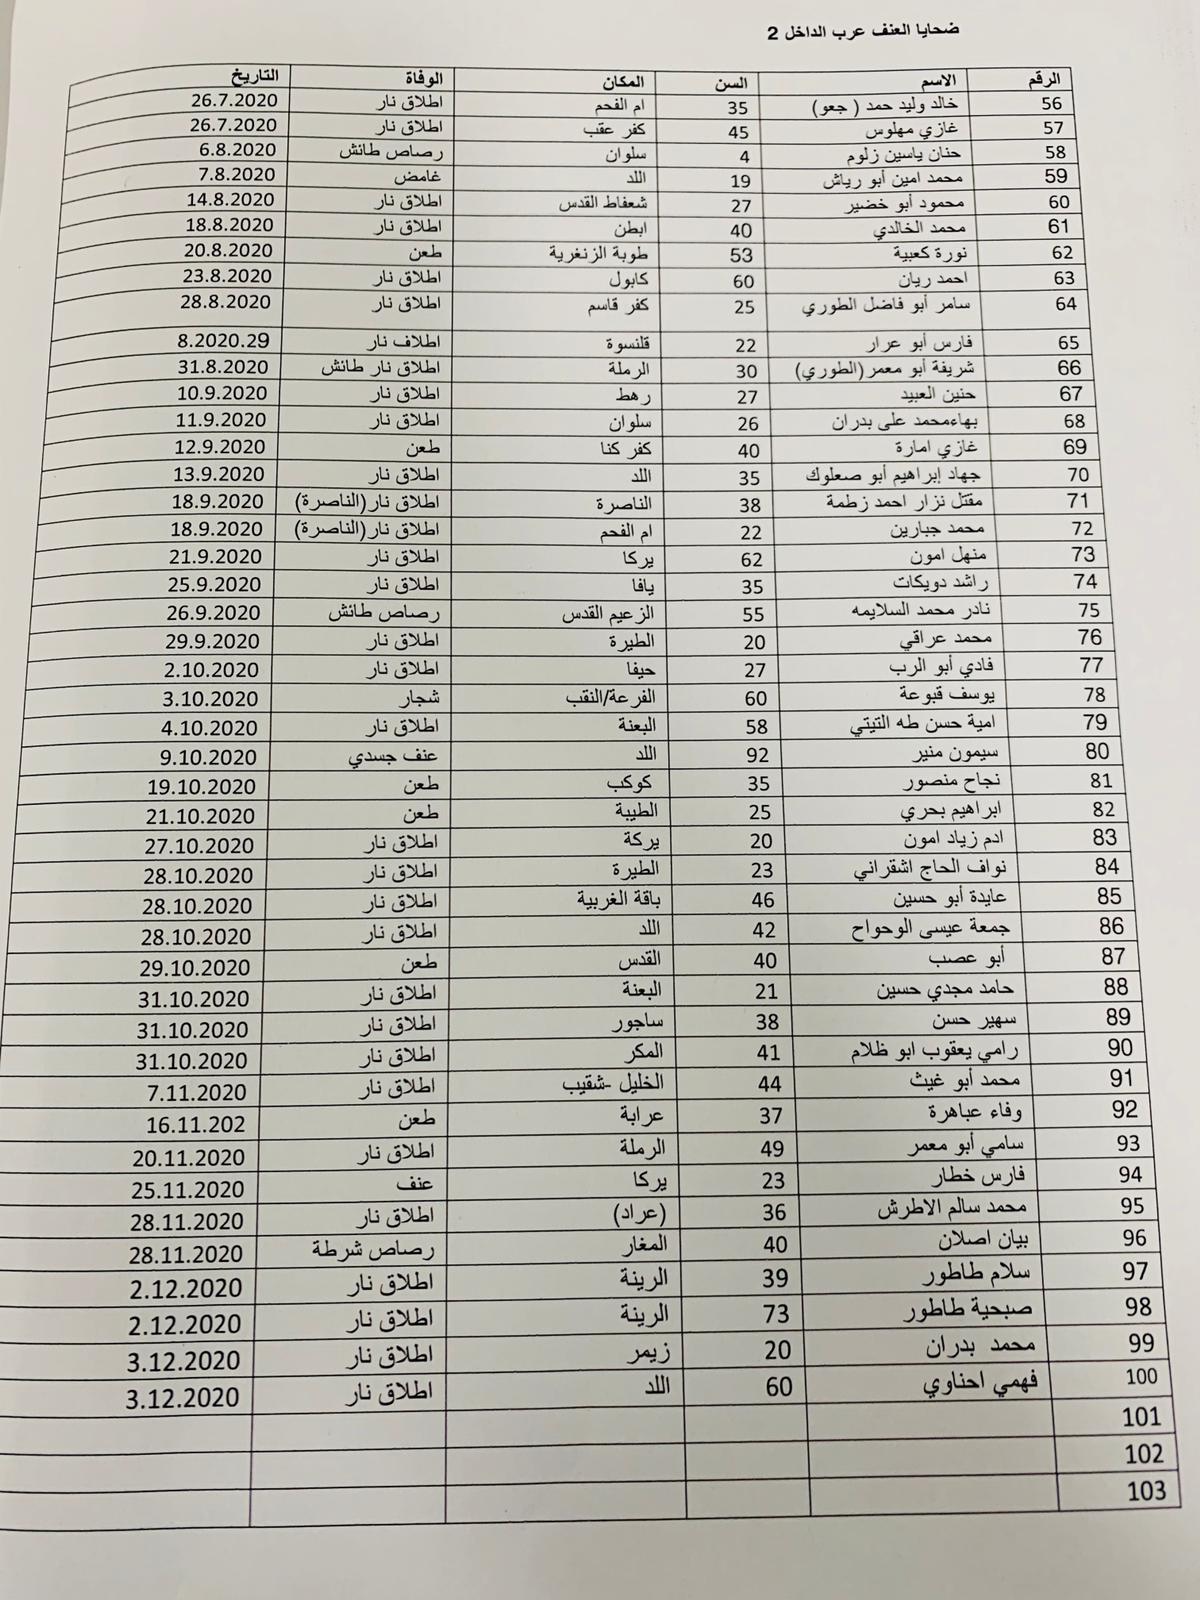 ضحايا العنف عرب الداخل 2
الرقم الاسم السن المكان الوفاة التاريخ
56 خالد وليد حمد ( جعو) 35 ام الفحم اطلاق نار 26.7.2020
57 غازي مهلوس 45 كفر عقب اطلاق نار 26.7.2020
58 حنان ياسين زلوم 4 سلوان رصاص طائش 6.8.2020
59 محمد امين أبو رياش 19 اللد غامض 7.8.2020
60 محمود أبو خضير 27 شعفاط القدس اطلاق نار 14.8.2020
61 محمد الخالدي 40 ابطن اطلاق نار 18.8.2020
62 نورة كعبية 53 طوبة الزنغرية طعن 20.8.2020
63 احمد ريان 60 كابول اطلاق نار 23.8.2020
64 سامر أبو فاضل الطوري 25 كفر قاسم اطلاق نار 28.8.2020
65 فارس أبو عرار 22 قلنسوة اطلاف نار 8.2020.29
66 شريفة أبو معمر(الطوري) 30 الرملة اطلاق نار طائش 31.8.2020
67 حنين العبيد 27 رهط اطلاق نار 10.9.2020
68 بهاءمحمد على بدران 26 سلوان اطلاق نار 11.9.2020
69 غازي امارة 40 كفر كنا طعن 12.9.2020
70 جهاد إبراهيم أبو صعلوك 35 اللد اطلاق نار 13.9.2020
71 مقتل نزار احمد زطمة 38 الناصرة اطلاق نار(الناصرة) 18.9.2020
72 محمد جبارين 22 ام الفحم اطلاق نار(الناصرة) 18.9.2020
73 منهل امون 62 يركا اطلاق نار 21.9.2020
74 راشد دويكات 35 يافا اطلاق نار 25.9.2020
75 نادر محمد السلايمه 55 الزعيم القدس رصاص طائش 26.9.2020
76 محمد عراقي 20 الطيرة اطلاق نار 29.9.2020
77 فادي أبو الرب 27 حيفا اطلاق نار 2.10.2020
78 يوسف قبوعة 60 الفرعة/النقب شجار 3.10.2020
79 امية حسن طه التيتي 58 البعنة اطلاق نار 4.10.2020
80 سيمون منير 92 اللد عنف جسدي 9.10.2020
81 نجاح منصور 35 كوكب طعن 19.10.2020
82 ابراهيم بحري 25 الطيبة طعن 21.10.2020
83 ادم زياد امون 20 يركة اطلاق نار 27.10.2020
84 نواف الحاج اشقراني 23 الطيرة اطلاق نار 28.10.2020
85 عايدة أبو حسين 46 باقة الغربية اطلاق نار 28.10.2020
86 جمعة عيسى الوحواح 42 اللد اطلاق نار 28.10.2020
87 أبو عصب 40 القدس طعن 29.10.2020
88 حامد مجدي حسين 21 البعنة اطلاق نار 31.10.2020
89 سهير حسن 38 ساجور اطلاق نار 31.10.2020
90 رامي يعقوب ابو ظلام 41 المكر اطلاق نار 31.10.2020
91 محمد أبو غيث 44 الخليل -شقيب اطلاق نار 7.11.2020
92 وفاء عباهرة 37 عرابة طعن 16.11.202
93 سامي أبو معمر 49 الرملة اطلاق نار 20.11.2020
94 فارس خطار 23 يركا عنف 25.11.2020
95 محمد سالم الاطرش 36 (عراد) اطلاق نار 28.11.2020
96 بيان اصلان 40 المغار رصاص شرطة 28.11.2020
97 سلام طاطور 39 الرينة اطلاق نار 2.12.2020
98 صبحية طاطور 73 الرينة اطلاق نار 2.12.2020
99 محمد بدران 20 زيمر اطلاق نار 3.12.2020
100 فهمي احناوي 60 اللد اطلاق نار 3.12.2020
101
102
103